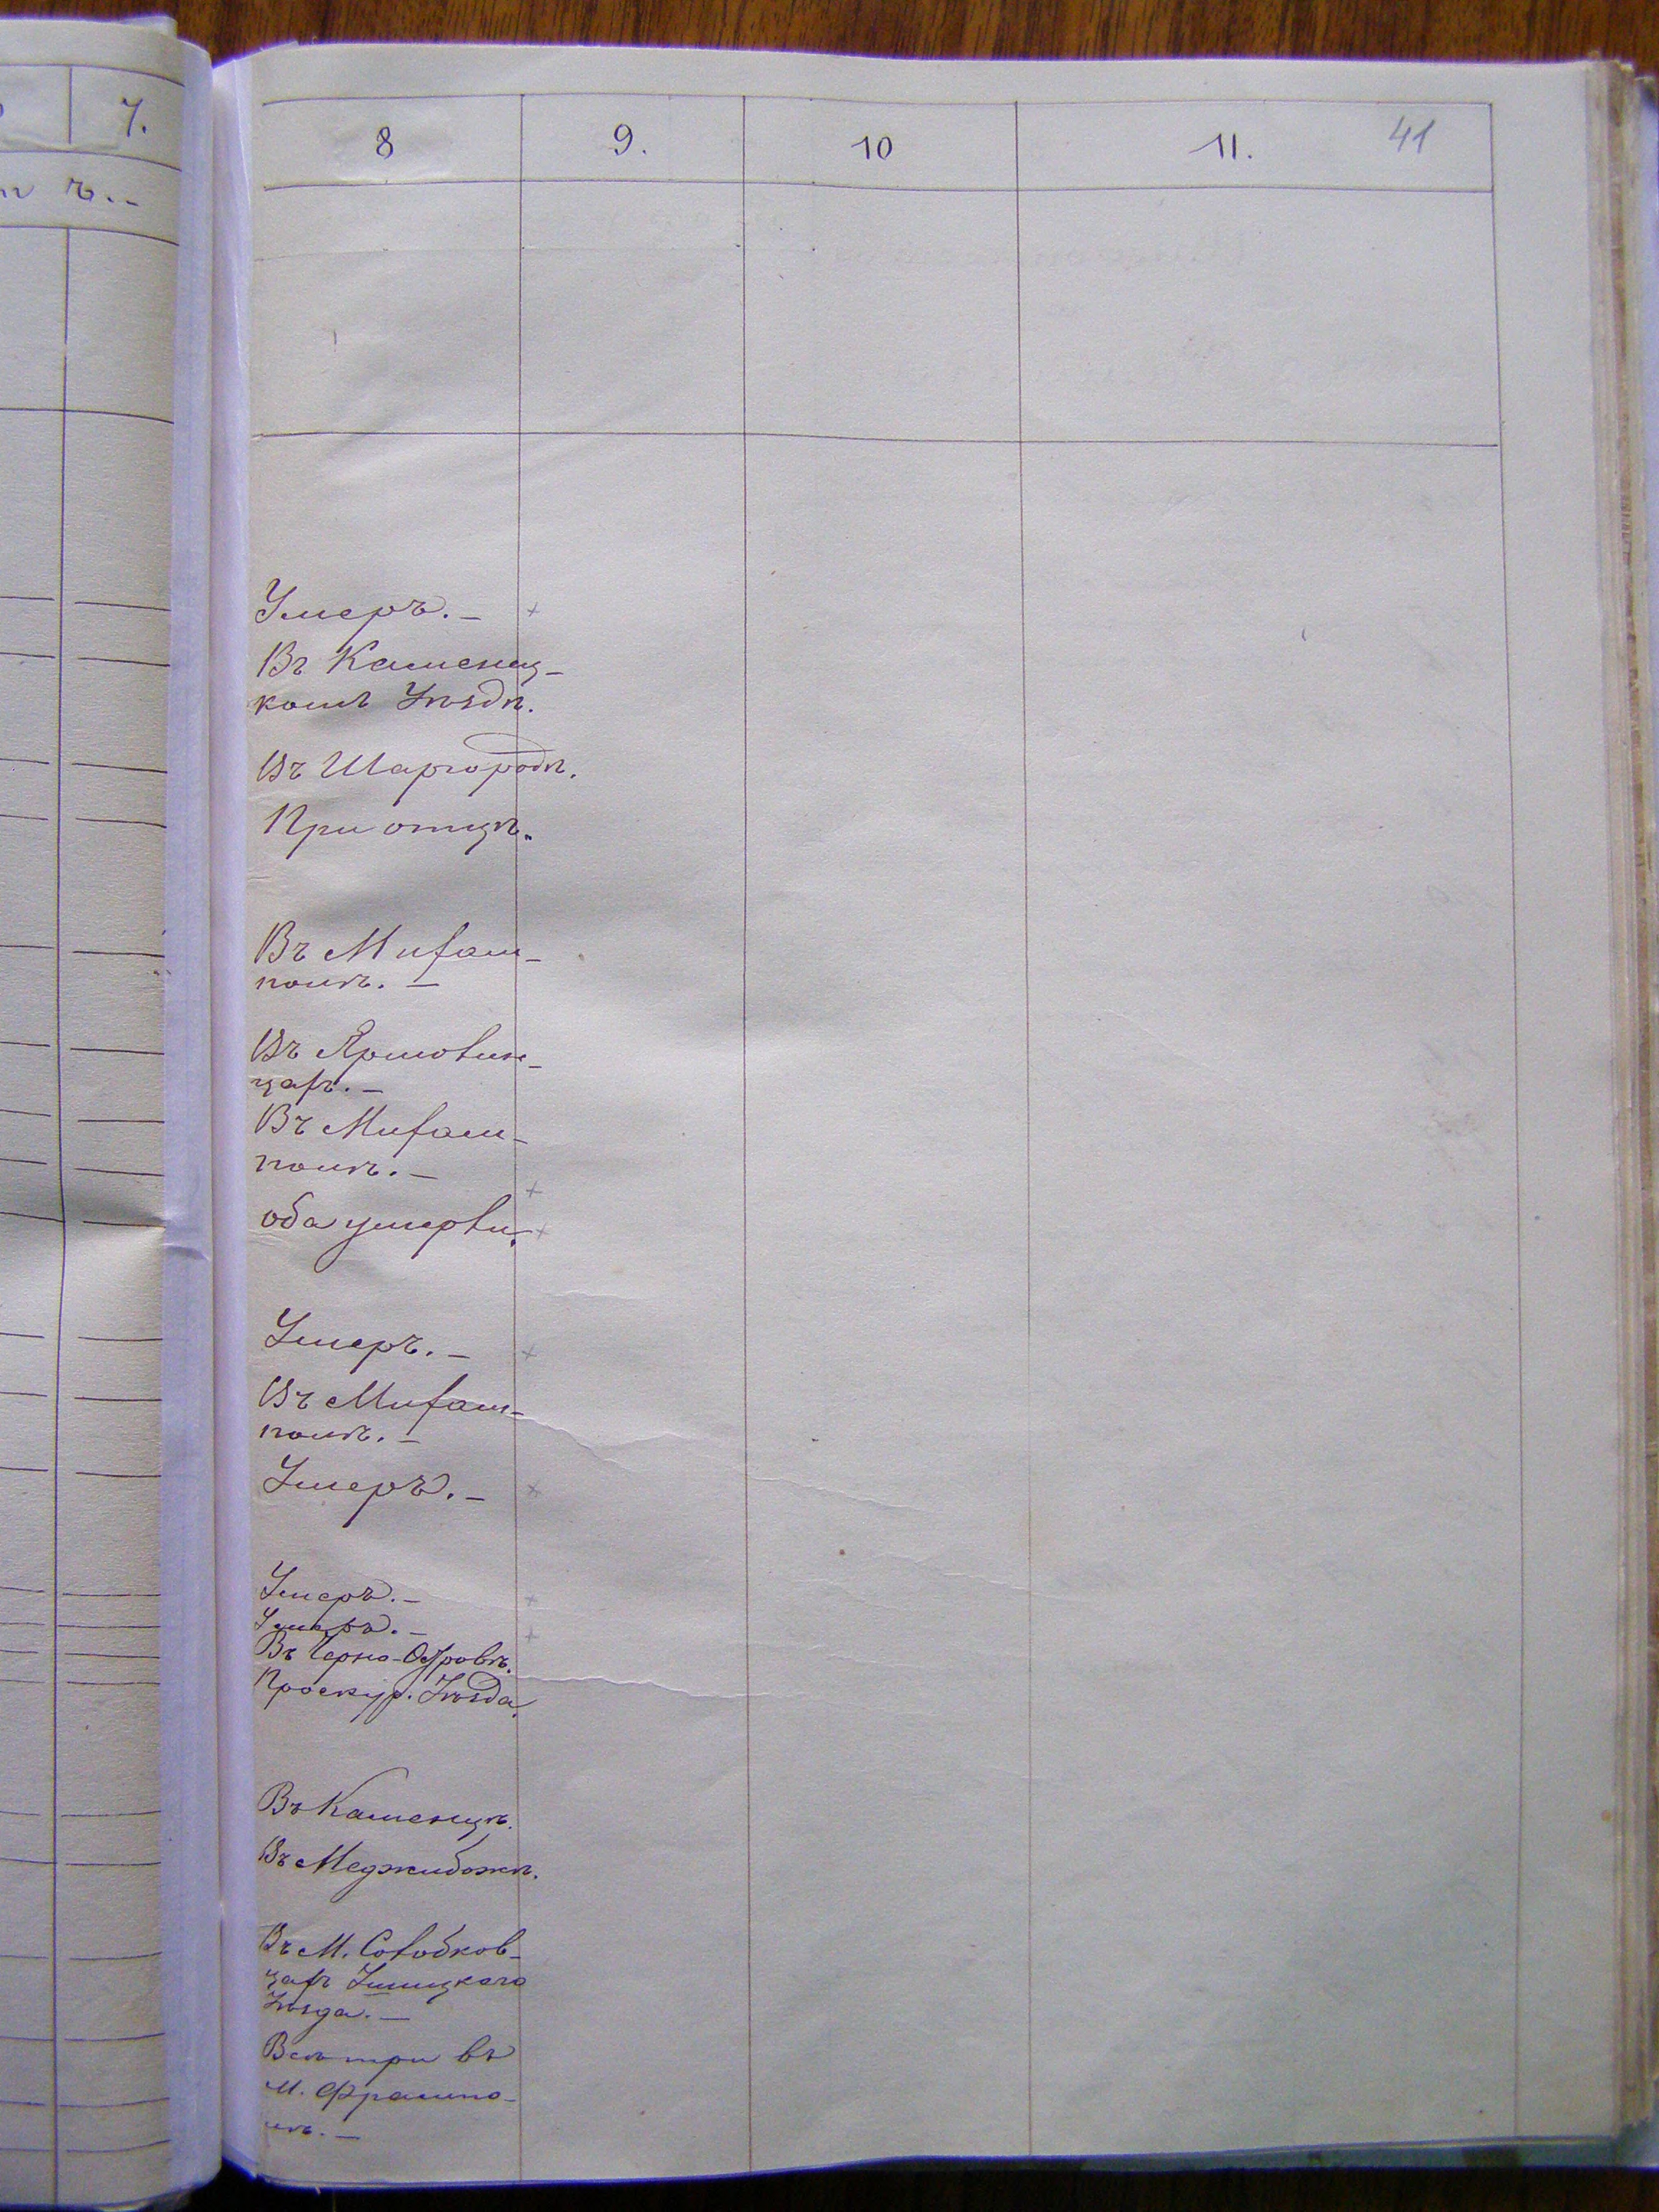 7.
8 9. 10 11. 41
Умеръ. —
Въ Каменец-
комъ Уѣздѣ.
Въ Шаргородѣ.
При отцѣ.
Въ Михам-
полѣ. —
Въ Ярмолин-
цахъ. —
Въ Михам-
полѣ. —
оба умерли.
Умеръ. —
Въ Михам-
полѣ. —
Умеръ. —
Умеръ. —
Умеръ. —
Въ Черно-Островѣ.
Проскур. Уѣзда.
Въ Каменцѣ.
Въ Меджибожѣ.
Въ М. Солобков-
цахъ Ушицкаго
Уѣзда. —
Всѣ три въ
М. Фрампо-
лѣ. —